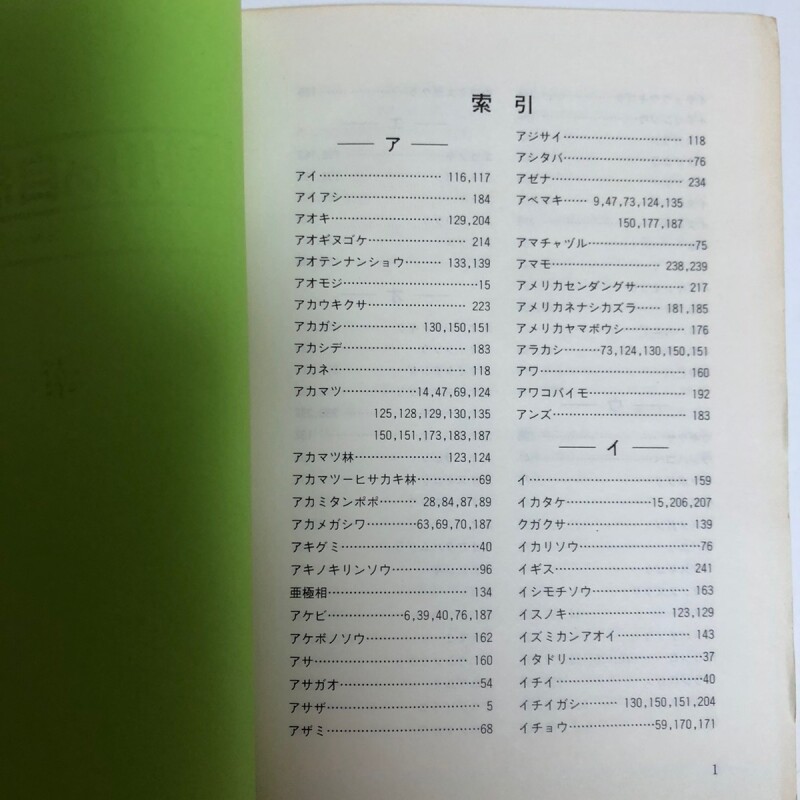 索引
ア
アイ 116,117
アイアシ 184
アオキ 129,204
アオギヌゴケ 214
アオテンナンショウ 133,139
アオモジ 15
アカウキクサ 223
アカガシ 130,150,151
アカシデ 183
アカネ 118
アカマツ 14,47,69,124
125,128,129,130,135
150,151,173,183,187
アカマツ林 123,124
アカマツーヒサカキ林 69
アカミタンポポ 28,84,87,89
アカメガシワ 63,69,70,187
アキグミ 40
アキノキリンソウ 96
亜極相 134
アケビ 6,39,40,76,187
アケボノソウ 162
アサ 160
アサガオ 54
アサザ 5
アザミ 68
アジサイ 118
アシタバ 76
アゼナ 234
アベマキ 9,47,73,124,135
150,177,187
アマチャヅル 75
アマモ 238,239
アメリカセンダングサ 217
アメリカネナシカズラ 181,185
アメリカヤマボウシ 176
アラカシ 73,124,130,150,151
アワ 160
アワコバイモ 192
アンズ 183
イ
イ 159
イカタケ 15,206,207
クガクサ 139
イカリソウ 76
イギス 241
イシモチソウ 163
イスノキ 123,129
イズミカンアオイ 143
イタドリ 37
イチイ 40
イチイガシ 130,150,151,204
イチョウ 59,170,171
1